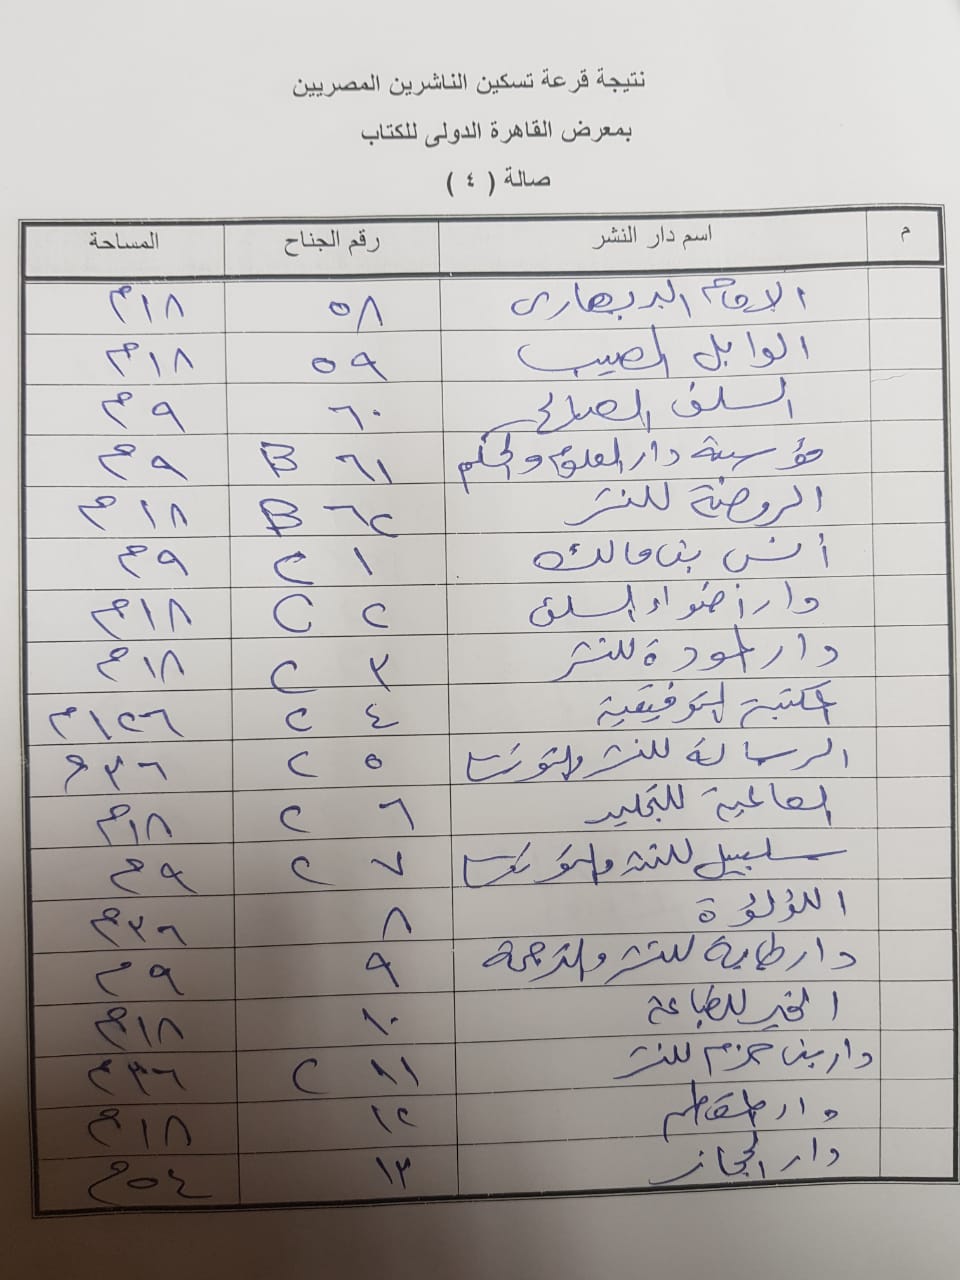 نتيجة قرعة تسكين الناشرين المصريين
بمعرض القاهرة الدولى للكتاب
صالة ( ٤ )
م اسم دار النشر رقم الجناح المساحة
الامام البربهارى ٥٨ ١٨م
الوابل الصيب ٥٩ ١٨م
السلف الصالح ٦٠ ٩م
مؤسسة دار العلوم والحكم ٦١ B ٩م
الروضة للنشر ٦٢ B ١٨م
أنس بن مالك ١ C ٩م
دار أضواء السلف ٢ C ١٨م
دار العودة للنشر ٣ C ١٨م
المكتبة التوفيقية ٤ C ١٢٦م
الرسالة للنشر والتوزيع ٥ C ٣٦م
العالمية للتجليد ٦ C ١٨م
سلسبيل للنشر والتوزيع ٧ C ٩م
اللؤلؤة ٨ ٣٦م
دار للنشر والترجمة ٩ ٩م
الخير للطباعة ١٠ ١٨م
دار بن حزم للنشر ١١ C ٣٦م
دار المقطم ١٢ ١٨م
دار الحجاز ١٣ ٥٤م